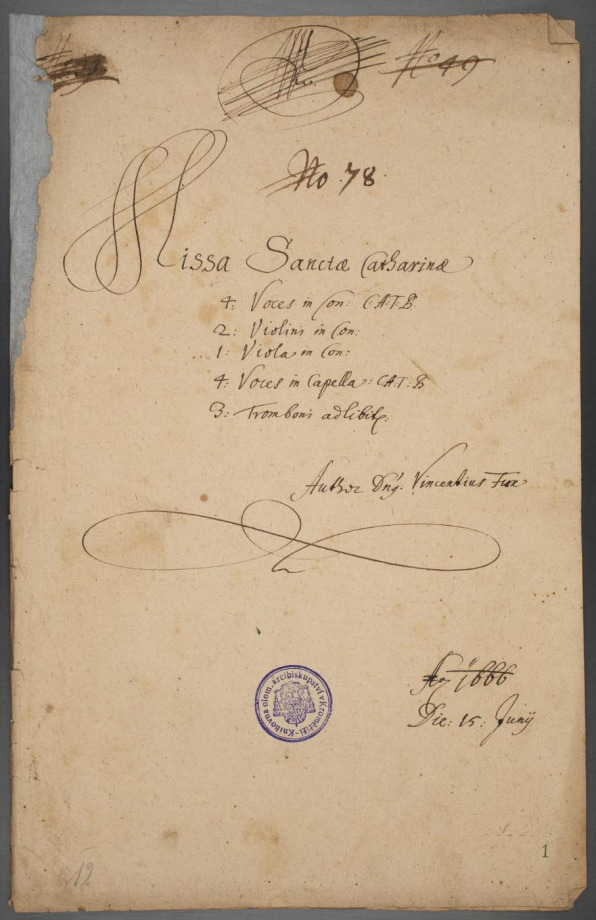 No 49
No 78
Missa Sanctæ Catharinæ
4: Voces in Con: C.A.T.B.
2: Violini in Con:
1: Viola in Con:
4: Voces in Capella: C.A.T.B
3: Tromboni ad libit:
Author Dn9: Vincentius Fux
Knihovna olom. arcibiskupství v Kroměříži
Aō 1666
Die: 15: Junÿ
12
1